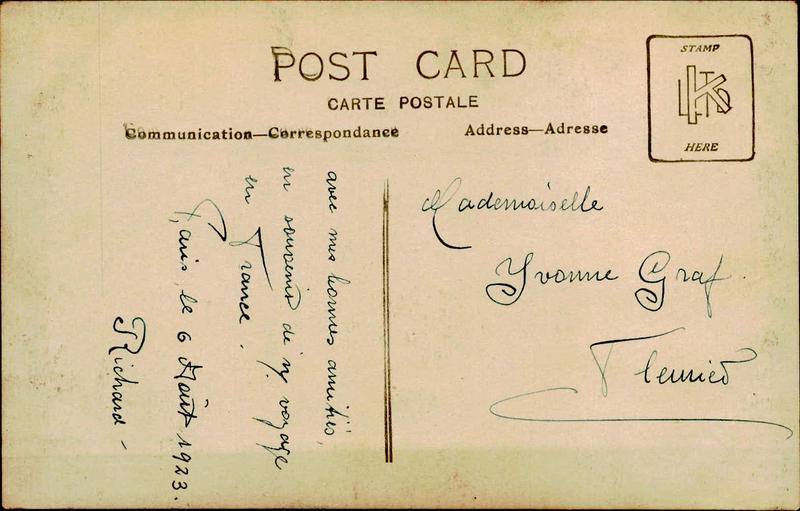 POST CARD
CARTE POSTALE
Communication—Correspondance
Address—Adresse
STAMP
HERE
avec mes bonnes amitiés,
en souvenir de voyage
en France.
Paris, le 6 Août 1923.
Richard –
Mademoiselle
Yvonne Graf
Fleurier